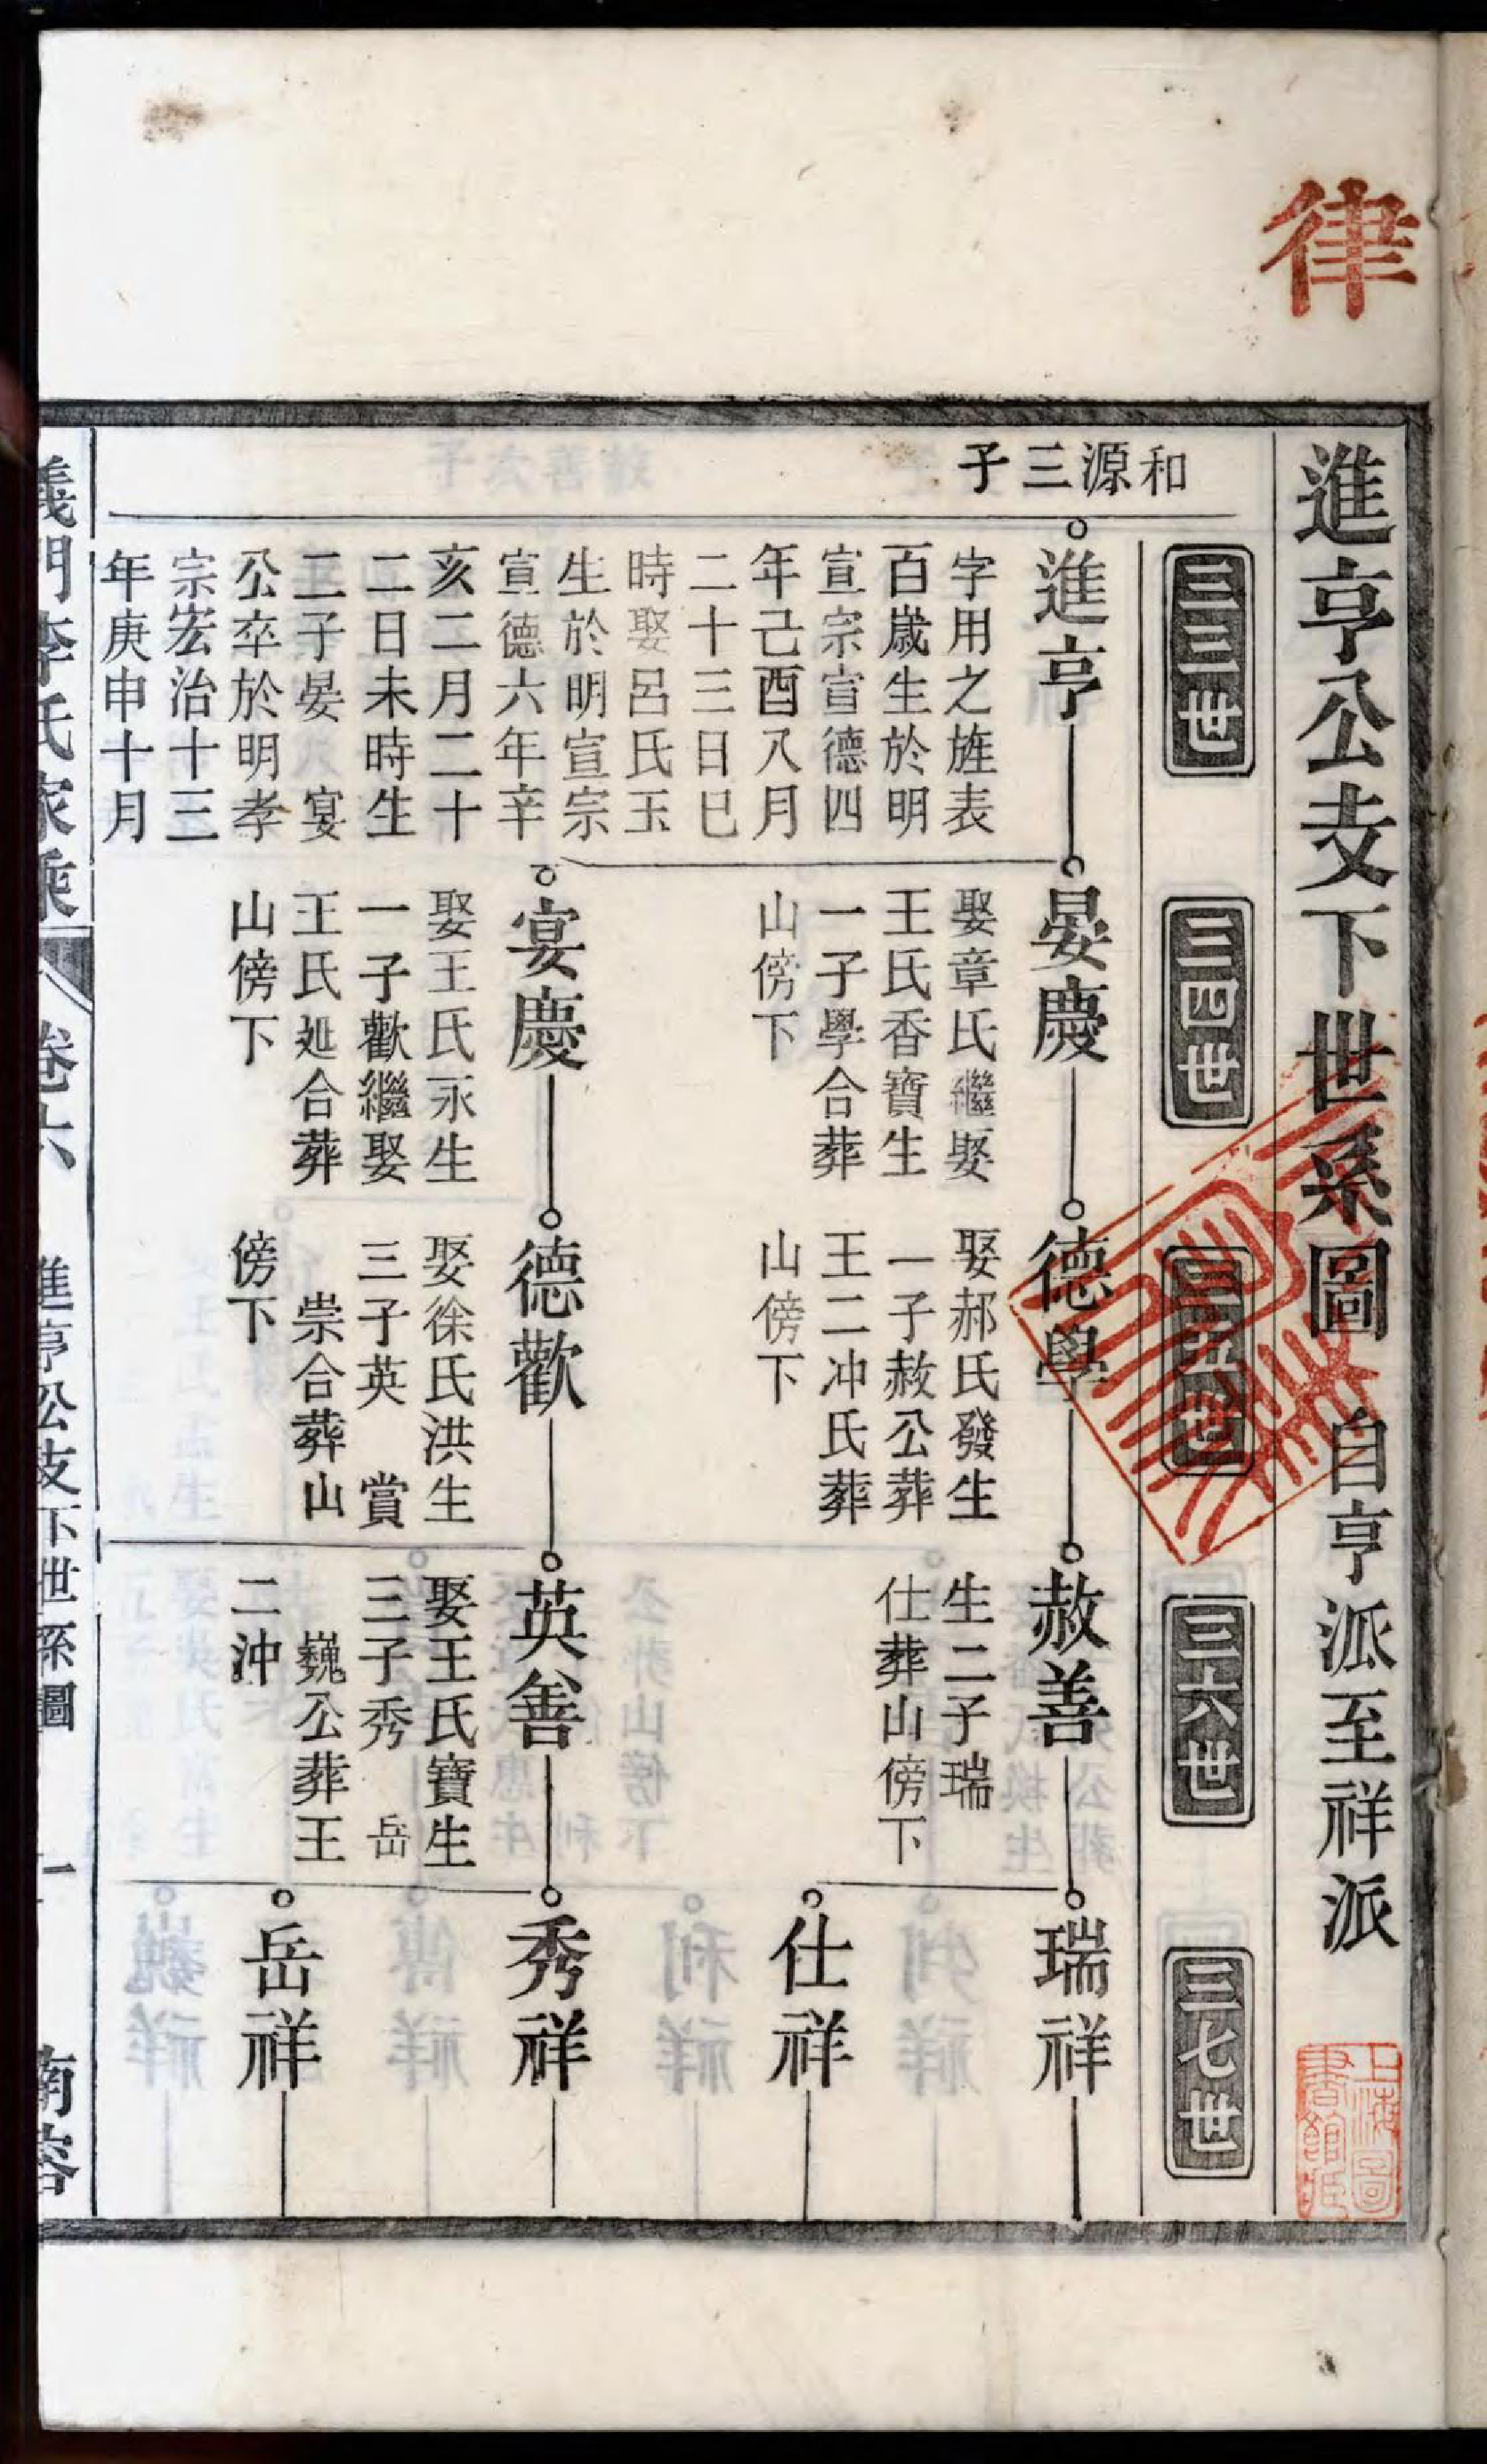 律
進亨公支下世系圖 自亨派至祥派
上海圖書館藏
三三世
三四世
三五世
三六世
三七世
和源三子
進亨
字用之旌表
百歲生於明
宣宗宣德四
年己酉八月
二十三日巳
時娶呂氏玉
生於明宣宗
宣德六年辛
亥二月二十
二日未時生
二子晏 宴
公卒於明孝
宗宏治十三
年庚申十月
晏慶
娶章氏繼娶
王氏香寶生
一子學合葬
山傍下
宴慶
娶王氏永生
一子歡繼娶
王氏延合葬
山傍下
德學
娶郝氏發生
一子赦公葬
王二冲氏葬
山傍下
德歡
娶徐氏洪生
三子英 賞
崇合葬山
傍下
赦善
生二子瑞
仕葬山傍下
英善
娶王氏寶生
三子秀 岳
巍公葬王
二沖
瑞祥
仕祥
秀祥
岳祥
義門李氏家乘 卷六 進亨公支下世系圖 一 南容